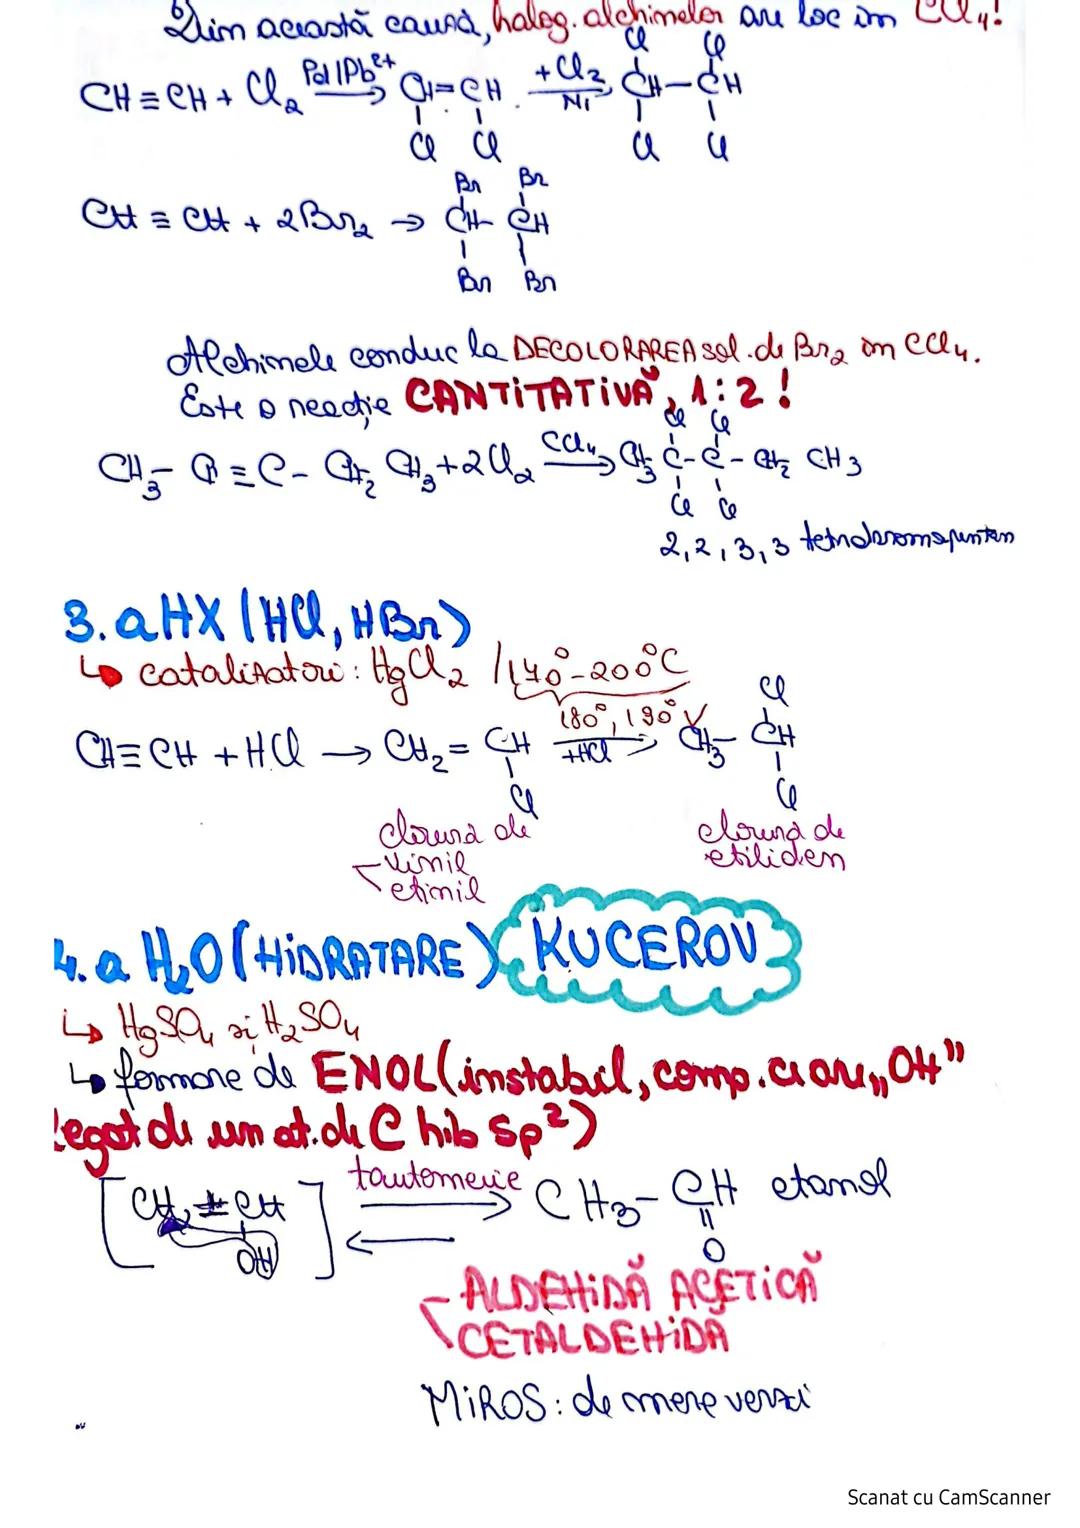 Din această cauză, halog. alchinelor are loc în CCl₄!
CH ≡ CH + Cl₂ —Pd/Pb²⁺→ CH = CH —+Cl₂/Ni→ CH – CH
Cl Cl
Cl Cl Cl Cl
CH ≡ CH + 2Br₂ → CH – CH
Br Br
Br Br
Alchinele conduc la DECOLORAREA sol. de Br₂ în CCl₄.
Este o reacție CANTITATIVĂ, 1:2!
CH₃ – C ≡ C – CH₂ CH₃ + 2Cl₂ —CCl₄→ CH₃ C – C – CH₂ CH3
Cl Cl
Cl Cl
2,2,3,3 tetrabromopentan
3. a HX (HCl, HBr)
↳ catalizatori: HgCl₂ / 170° - 200°C
180°, 190° V
CH ≡ CH + HCl → CH₂ = CH —+HCl→ CH₃ – CH
Cl
Cl
Cl
clorură de
vinil
etinil
clorură de
etiliden
4. a H₂O (HIDRATARE) KUCEROV
↳ HgSO₄ și H₂SO₄
↳ formare de ENOL (instabil, comp. ci are „OH"
legat de un at. de C hib sp²)
[CH₂ = CH] tautomerie CH₃ – CH etanol
OH
O
ALDEHIDĂ ACETICĂ
CETALDEHIDĂ
MIROS: de mere verzi
Scanat cu CamScanner